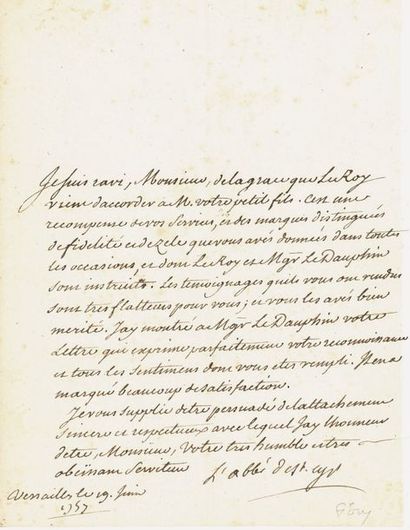 Je suis ravi, Monsieur, de la grace que Le Roy
vient d'accorder a M. votre petit fils. C'est une
recompense de vos Services, et des marques distinguées
de fidelité et de zele que vous avés données dans toutes
les occasions, et dont Le Roy et Mgr Le Dauphin
sont instruits. Les temoignages qu'ils vous ont rendus
sont tres flatteurs pour vous; et vous les avés bien
merité. Jay montré a Mgr Le Dauphin votre
Lettre qui exprime parfaitement votre reconnoissance
et tous les sentimens dont vous etes rempli. Il en a
marqué beaucoup de satisfaction.
Je vous supplie d'etre persuadé de l'attachement
sincere et respectueux avec lequel Jay l'honneur
d'etre, Monsieur, Votre tres humble et tres
obeissant Serviteur
L'abbé de St. Cyr
Versailles le 19. Juin
1757